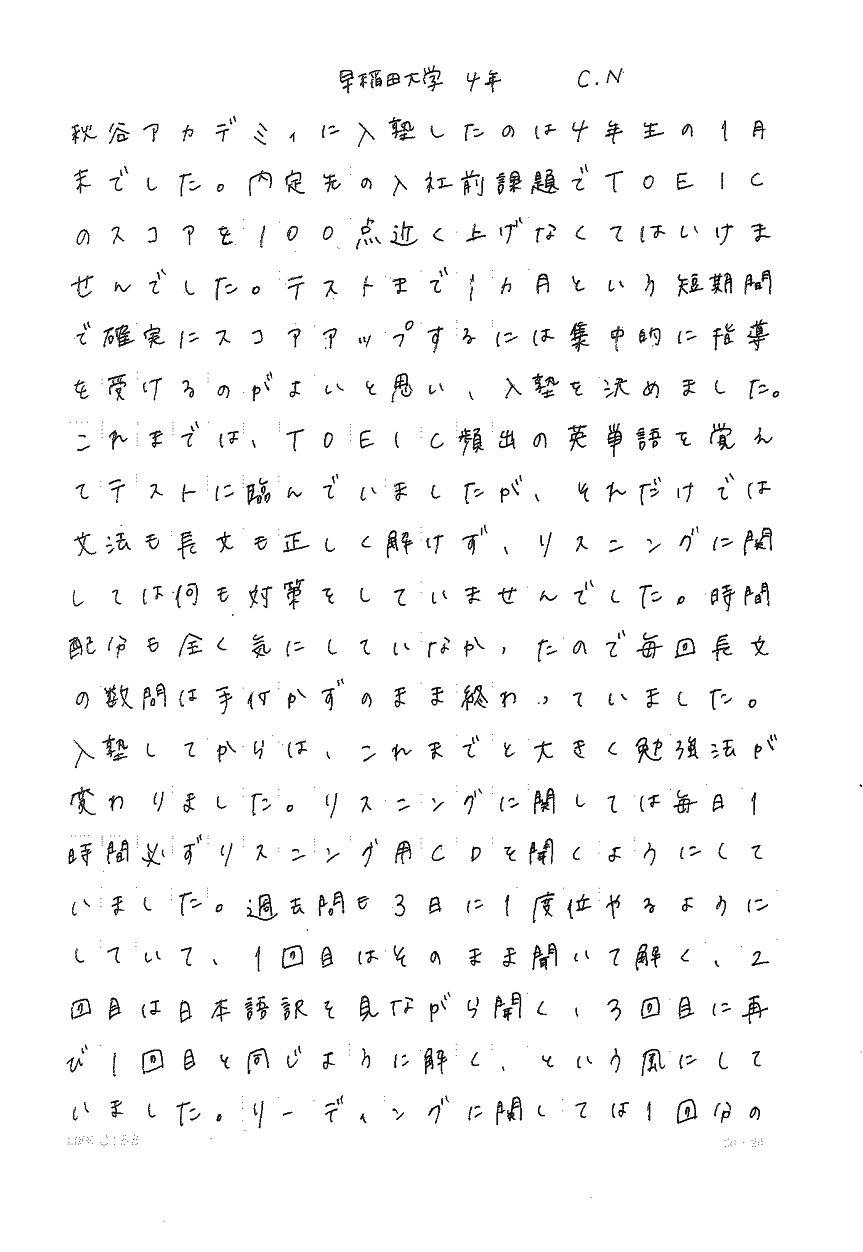 早稲田大学 4年 C.N
秋谷アカデミィに入塾したのは4年生の1月
末でした。内定先の入社前課題でTOEIC
のスコアを100点近く上げなくてはいけま
せんでした。テストまで1カ月という短期間
で確実にスコアアップするには集中的に指導
を受けるのがよいと思い、入塾を決めました。
これまでは、TOEIC頻出の英単語を覚え
てテストに臨んでいましたが、それだけでは
文法も長文も正しく解けず、リスニングに関
しては何も対策をしていませんでした。時間
配分も全く気にしていなかったので毎回長文
の数問は手付かずのまま終わっていました。
入塾してからは、これまでと大きく勉強法が
変わりました。リスニングに関しては毎日1
時間必ずリスニング用CDを聞くようにして
いました。過去問も3日に1度位やるように
していて、1回目はそのまま聞いて解く、2
回目は日本語訳を見ながら聞く、3回目に再
び1回目と同じように解く、という風にして
いました。リーディングに関しては1回分の